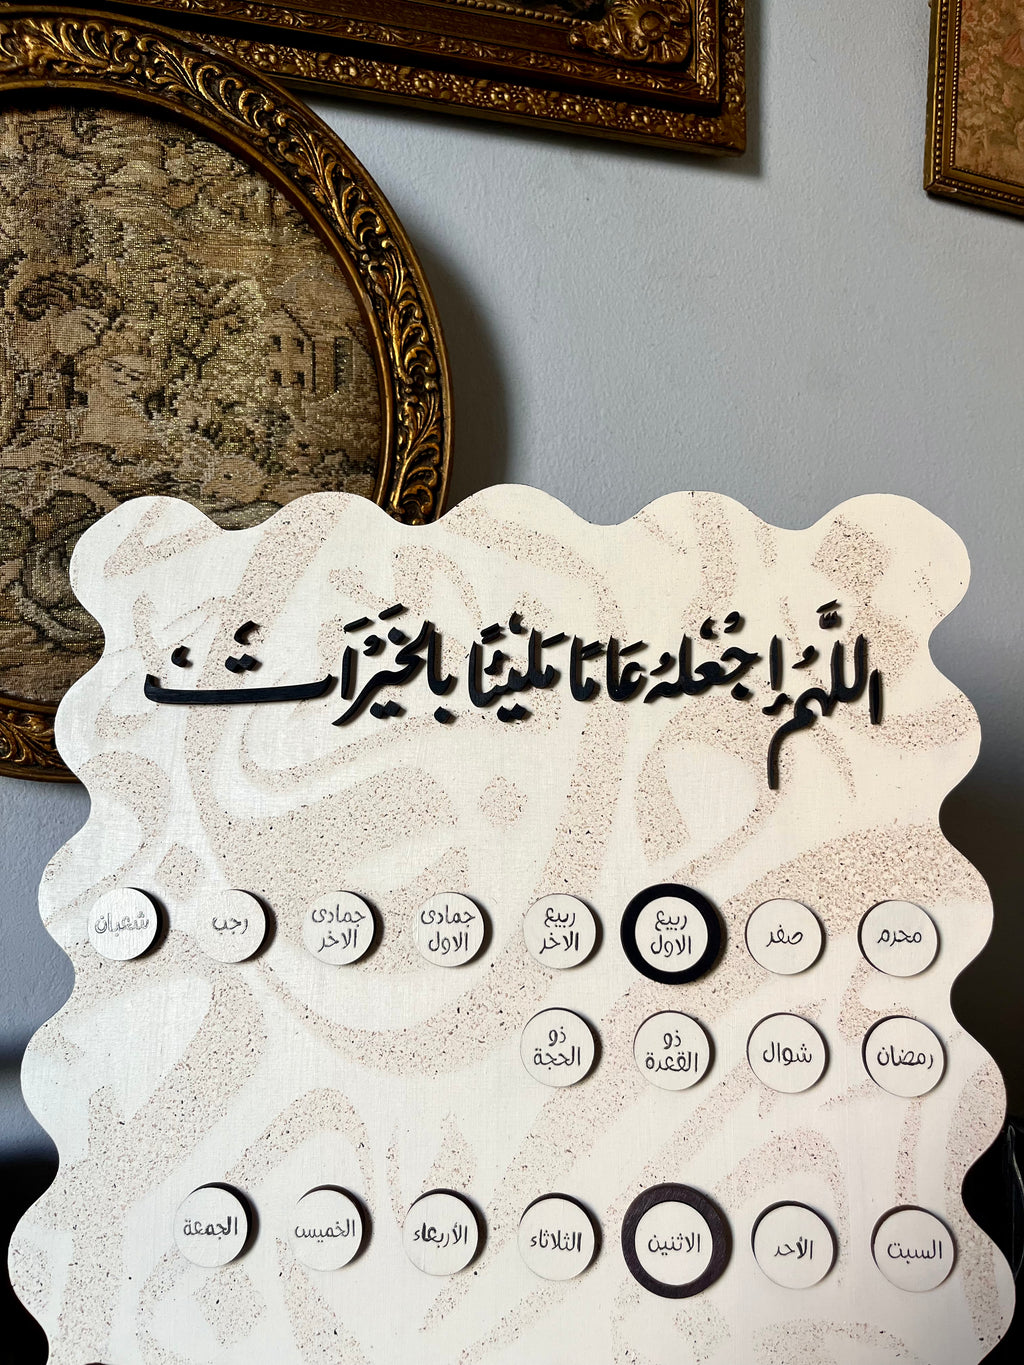 اللَّهُمَّ اجْعَلهُ عَامًا مَلِيئًا بِالخَيْرَاتْ
محرم صفر ربيع الاول ربيع الاخر جمادى الاول جمادى الاخر رجب شعبان
رمضان شوال ذو القعدة ذو الحجة
السبت الأحد الاثنين الثلاثاء الأربعاء الخميس الجمعة